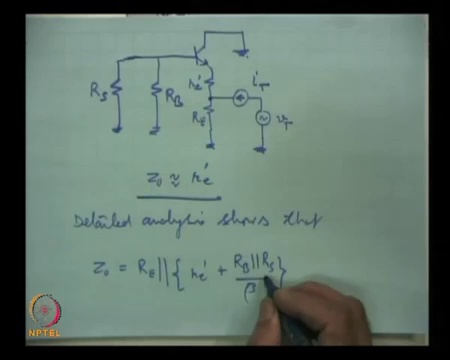 R_S
R_B
r_e'
R_E
i_T
v_T
Z_0 ≈ r_e'
Detailed analysis shows that
Z_0 = R_E || { r_e' + R_B || R_S / β }
NPTEL